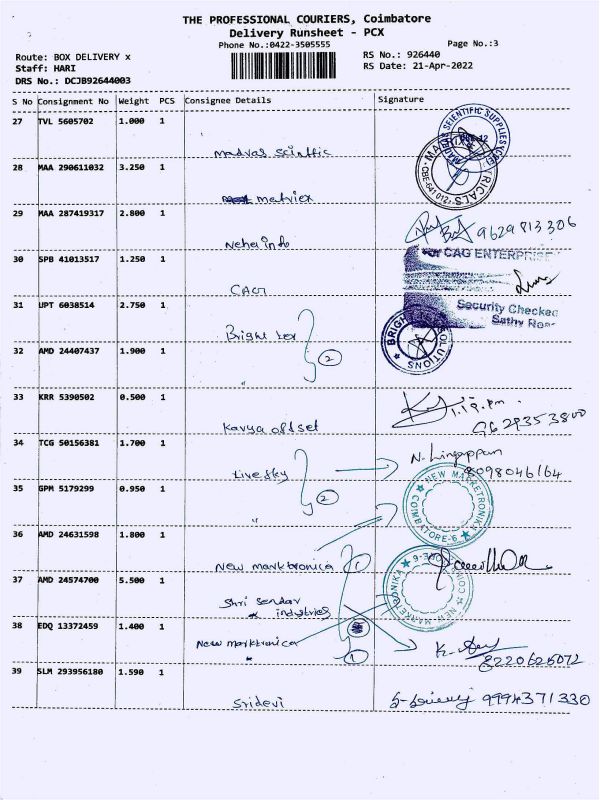 THE PROFESSIONAL COURIERS, Coimbatore
Delivery Runsheet - PCX
Phone No.:0422-3505555
Page No.:3
Route: BOX DELIVERY x
RS No.: 926440
Staff: HARI
RS Date: 21-Apr-2022
DRS No.: DCJB92644003
S No Consignment No Weight PCS Consignee Details Signature
27 TVL 5605702 1.000 1
Madras Scintfic
28 MAA 290611032 3.250 1
matriex
29 MAA 287419317 2.800 1
Nehaindo 9629813306
30 SPB 41013517 1.250 1
For CAG ENTERPRISE
CAG
Security Checked
31 UPT 6038514 2.750 1
Sathy Road
Bright Lex
2
32 AMD 24407437 1.900 1
"
BRIGHT SOLUTIONS
33 KRR 5390502 0.500 1
1.19.pm
Kavya offset 9629353800
34 TCG 50156381 1.700 1
N. Lingappan
Livesky 8098046164
35 GPM 5179299 0.950 1
2
"
NEW MARKETRONIKA
COIMBATORE-6
36 AMD 24631598 1.800 1
New marktronica 1
37 AMD 24574700 5.500 1
Shri Sendar
industries
NEW MARKETRONIKA
38 EDQ 13372459 1.400 1
New marktronica
1
8220625072
39 SLM 293956180 1.590 1
Sridevi 9994371330